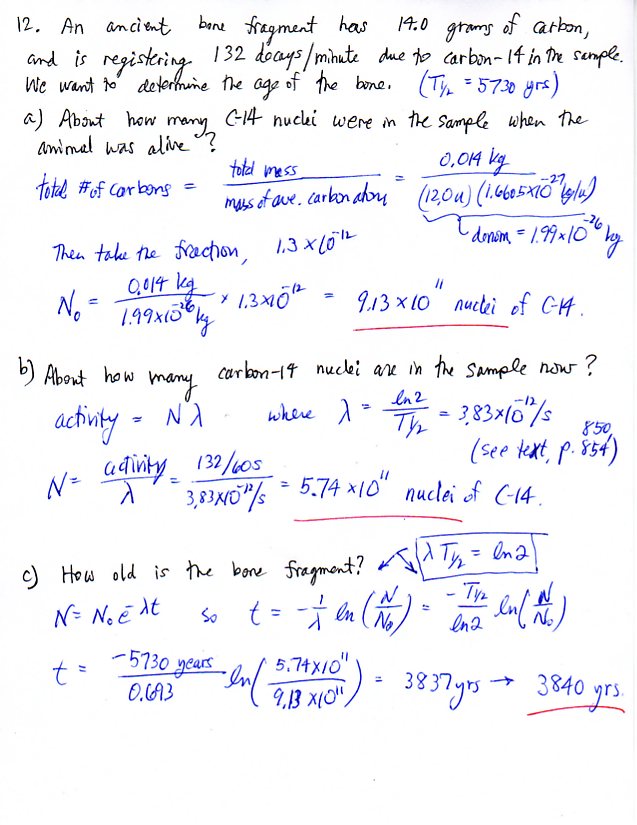 12. An ancient bone fragment has 14.0 grams of carbon,
and is registering 132 decays/minute due to carbon-14 in the sample.
We want to determine the age of the bone. (T½ = 5730 yrs)
a) About how many C-14 nuclei were in the sample when the
animal was alive?
total # of carbons = total mass / mass of ave. carbon atom = 0.014 kg / (12.0 u)(1.6605×10⁻²⁷ kg/u)
denom = 1.99×10⁻²⁶ kg
Then take the fraction, 1.3×10⁻¹²
N₀ = 0.014 kg / 1.99×10⁻²⁶ kg × 1.3×10⁻¹² = 9.13×10¹¹ nuclei of C-14.
b) About how many carbon-14 nuclei are in the sample now?
activity = Nλ where λ = ln2 / T½ = 3.83×10⁻¹²/s
(see text, p. 850, 854)
N = activity / λ = 132/60s / 3.83×10⁻¹²/s = 5.74×10¹¹ nuclei of C-14.
c) How old is the bone fragment? λT½ = ln2
N = N₀e⁻λt so t = -1/λ ln(N/N₀) = -T½/ln2 ln(N/N₀)
t = -5730 years / 0.693 ln(5.74×10¹¹ / 9.13×10¹¹) = 3837 yrs → 3840 yrs.